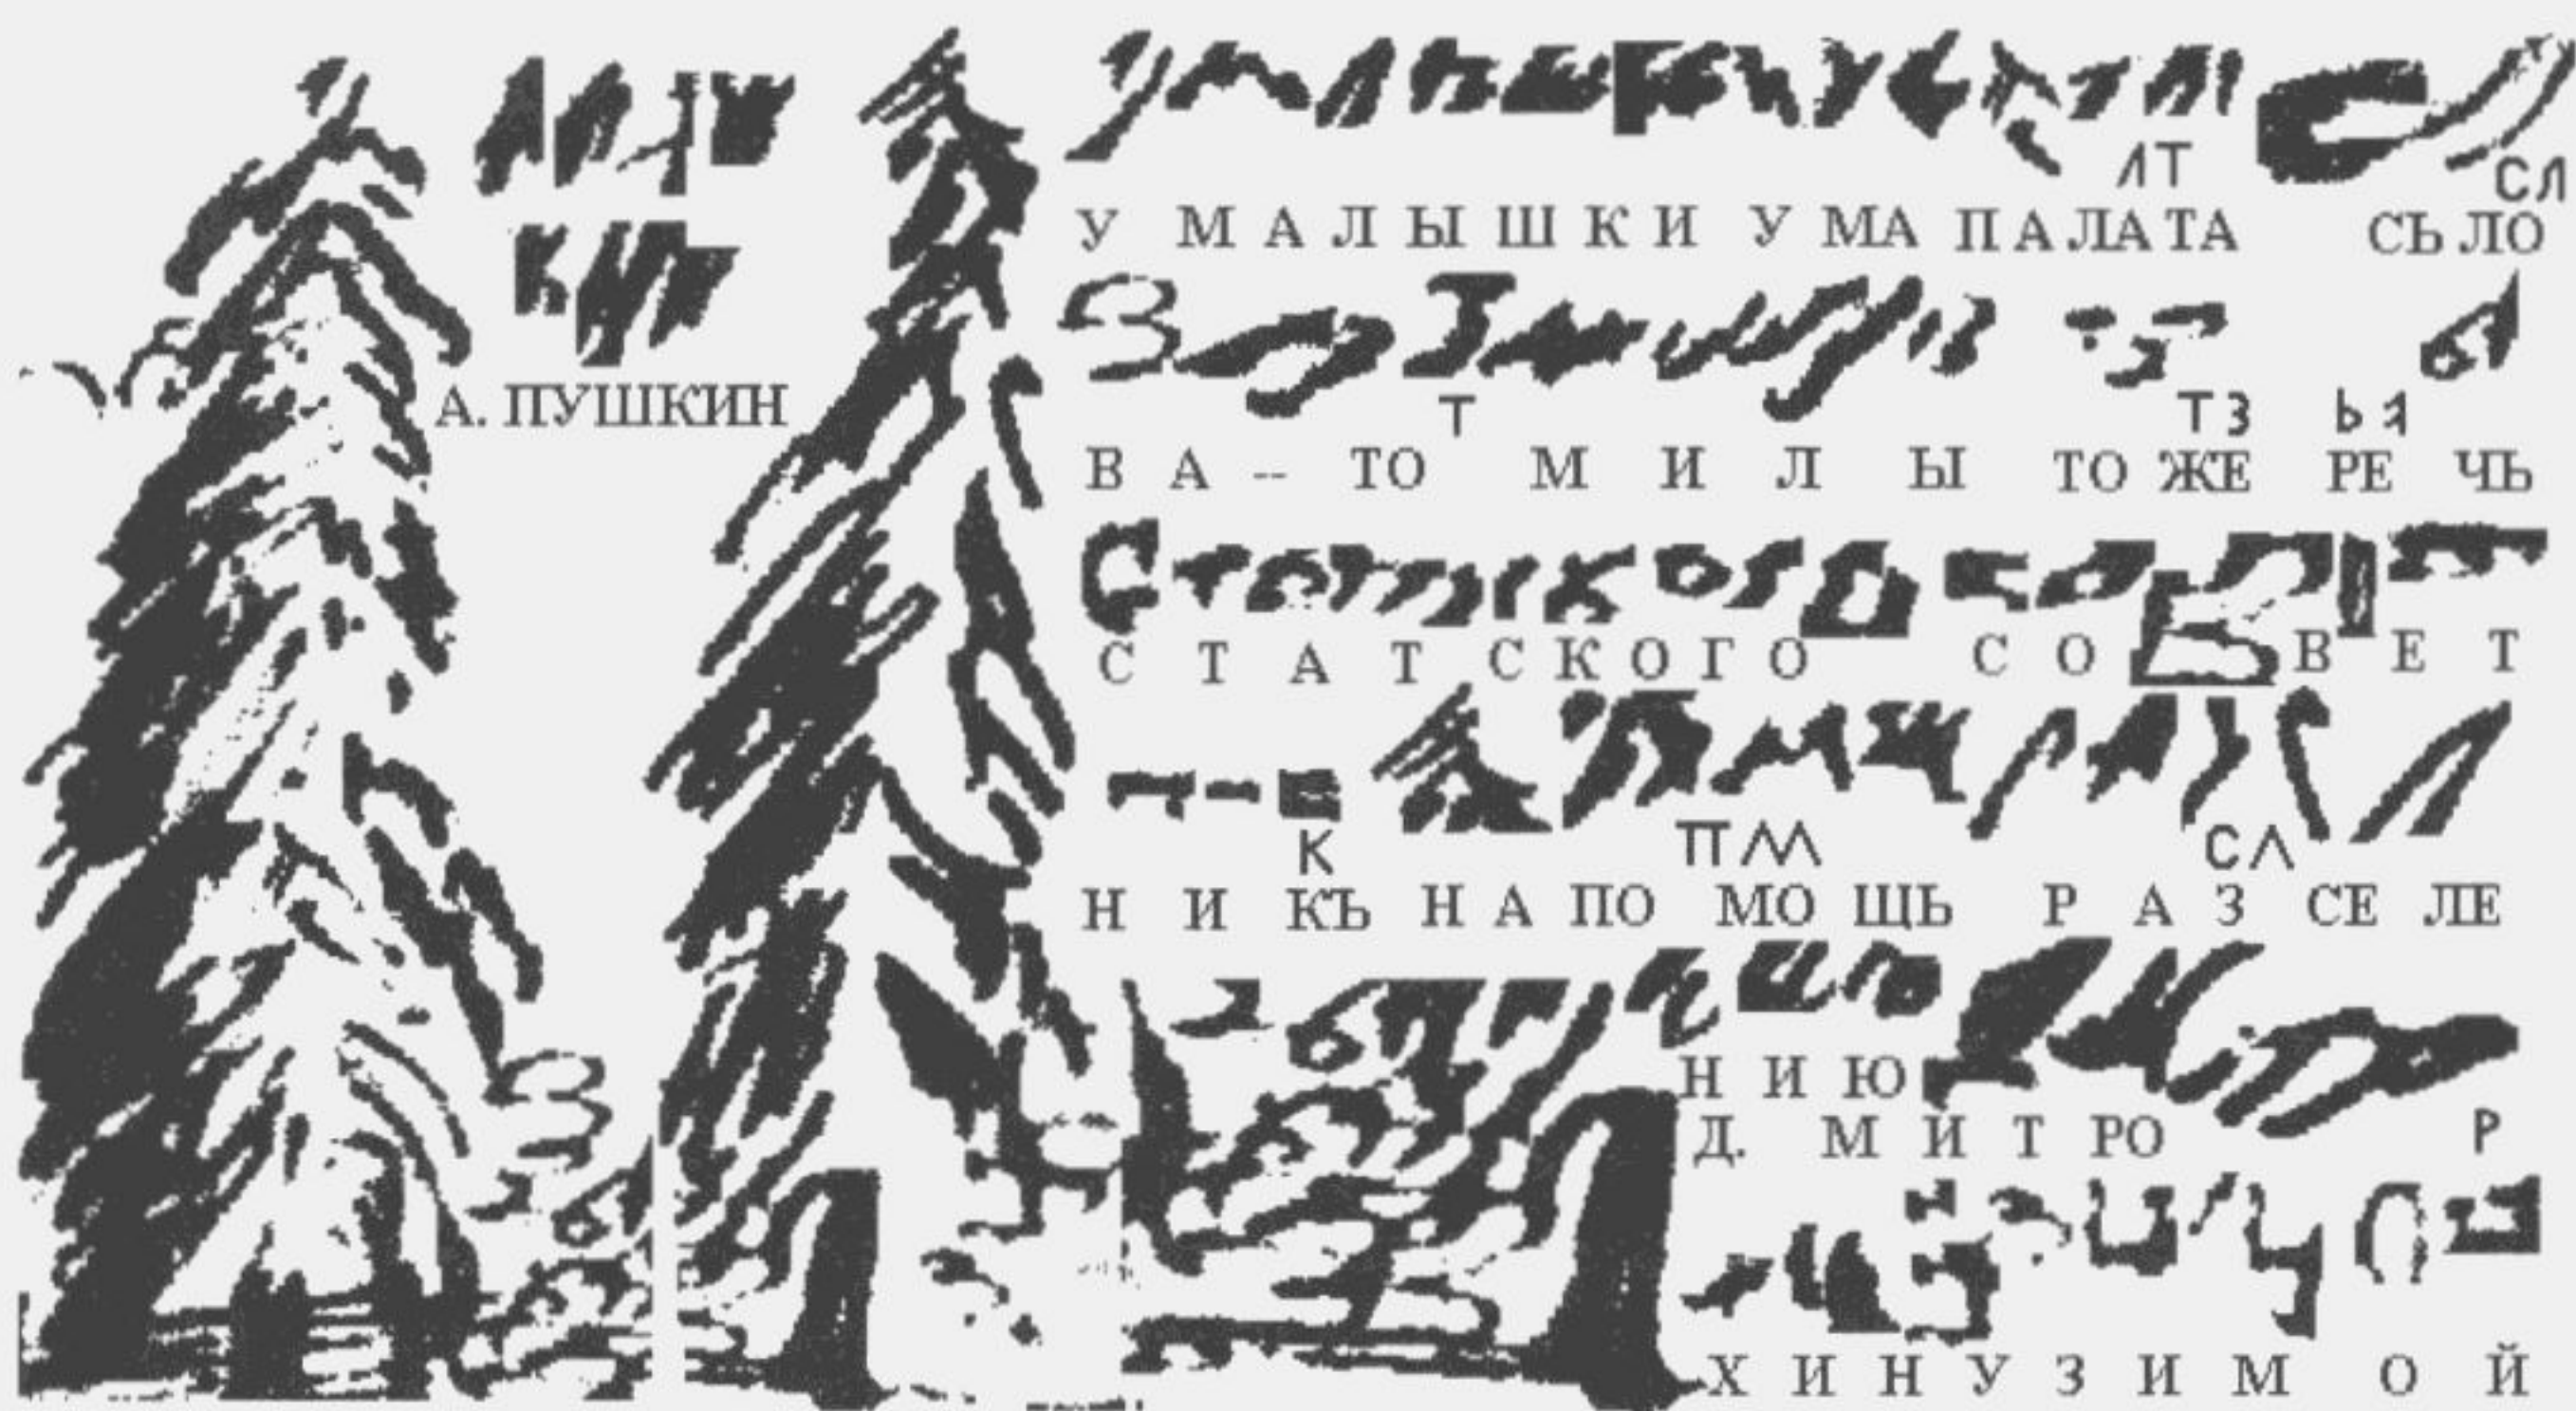 А. ПУШКИН
ЛТ
СЛ
У МАЛЫШКИ УМА ПАЛАТА СЬЛО
Т
ТЗ
Ь Л
ВА -- ТО МИЛЫ ТОЖЕ РЕЧЬ
СТАТСКОГО СОВЕТ
К
ПМ
СЛ
НИКЪ НА ПОМОЩЬ РАЗСЕЛЕ
НИЮ
Д. МИТРО
Р
ХИНУ ЗИМОЙ